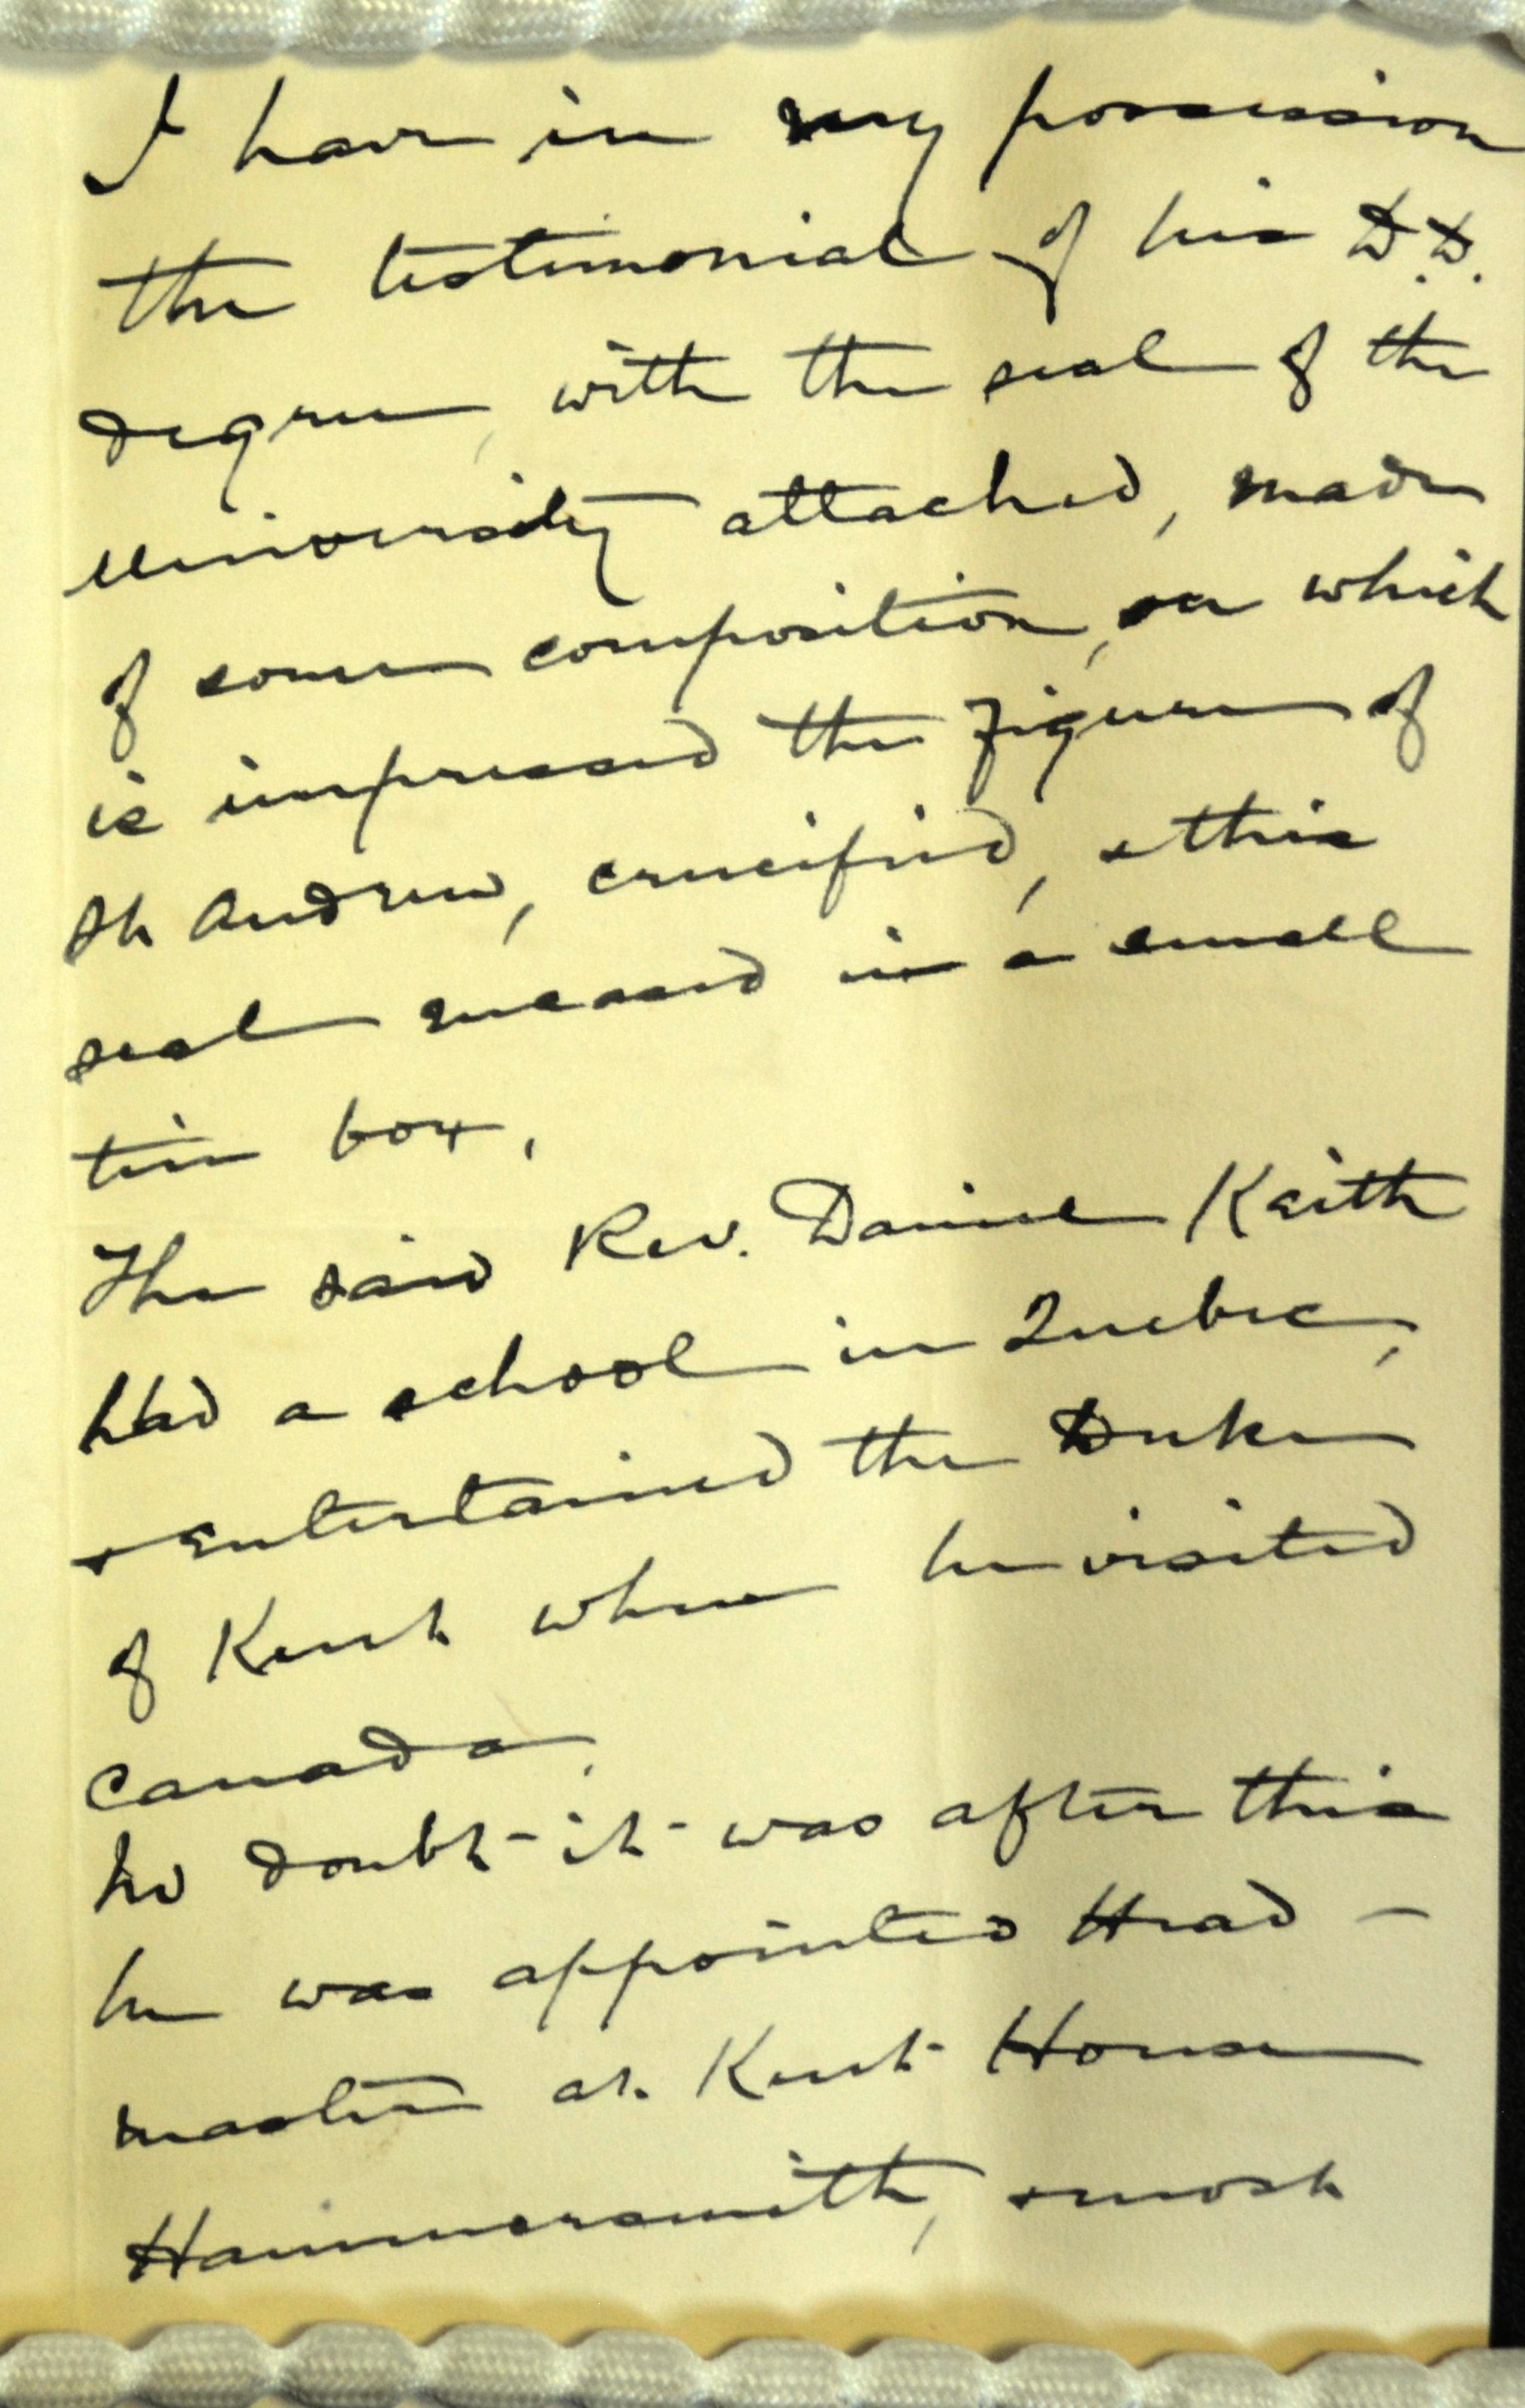 I have in my possession
the testimonial of his D.D.
degree, with the seal of the
University attached, made
of some composition, on which
is impressed the figure of
St Andrew, crucified, & this
seal encased in a small
tin box.
The said Rev. Daniel Keith
had a school in Quebec,
& entertained the Duke
of Kent when he visited
Canada.
no doubt it was after this
he was appointed Head-
master at Kent House
Hammersmith, & most